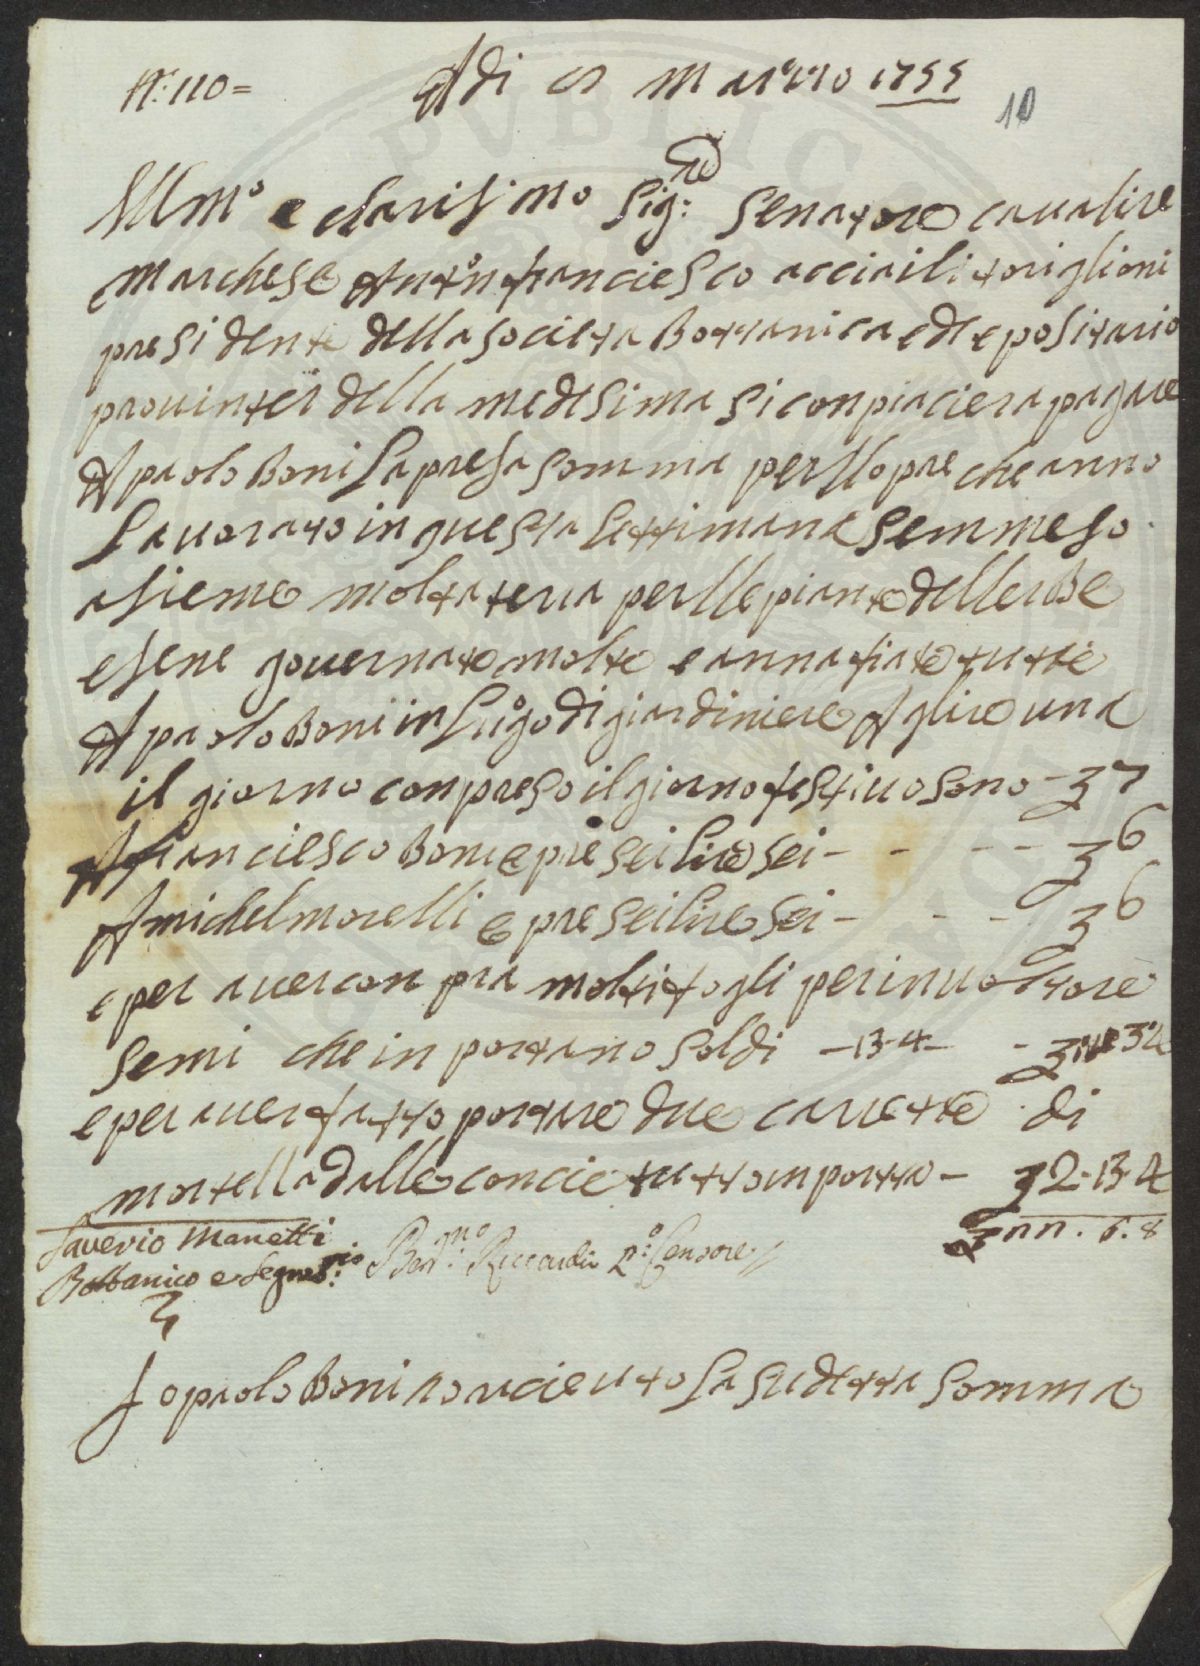 N.° 110 =
Adi marzo 1755
10
Illmo e clarisimo Sig.re Senatore cavalire
marchese Antōn franciesco acciaili toriglioni
presidente della società Bottanica e depositario
provinter della medesima si conpiaciera pagare
A paolo Boni la presa somma perllopre che anno
lavorato in questa settimana semmeso
asieme molta terra perlle piante dellerbe
esene governate molte e annafiate tutte
A paolo Boni in lugo di giardiniere A glire una
il giorno conpreso il giorno festivo sono - 7
A franciesco Boni epre sei lire sei - - - - 6
A michel morelli epre sei lire sei - - - 6
e per aver conpra molti fogli per involtore
semi che inportano soldi - 13-4 -
e per aver fatto portare due carrette di
mortella dalle concie tutto inporta - 2-13-4
6.8
Saverio Manetti
Bottanico e Segret.rio
Bern.no Riccardi P.° Censore
Jo paolo Boni o ricieuto la sudetta somma